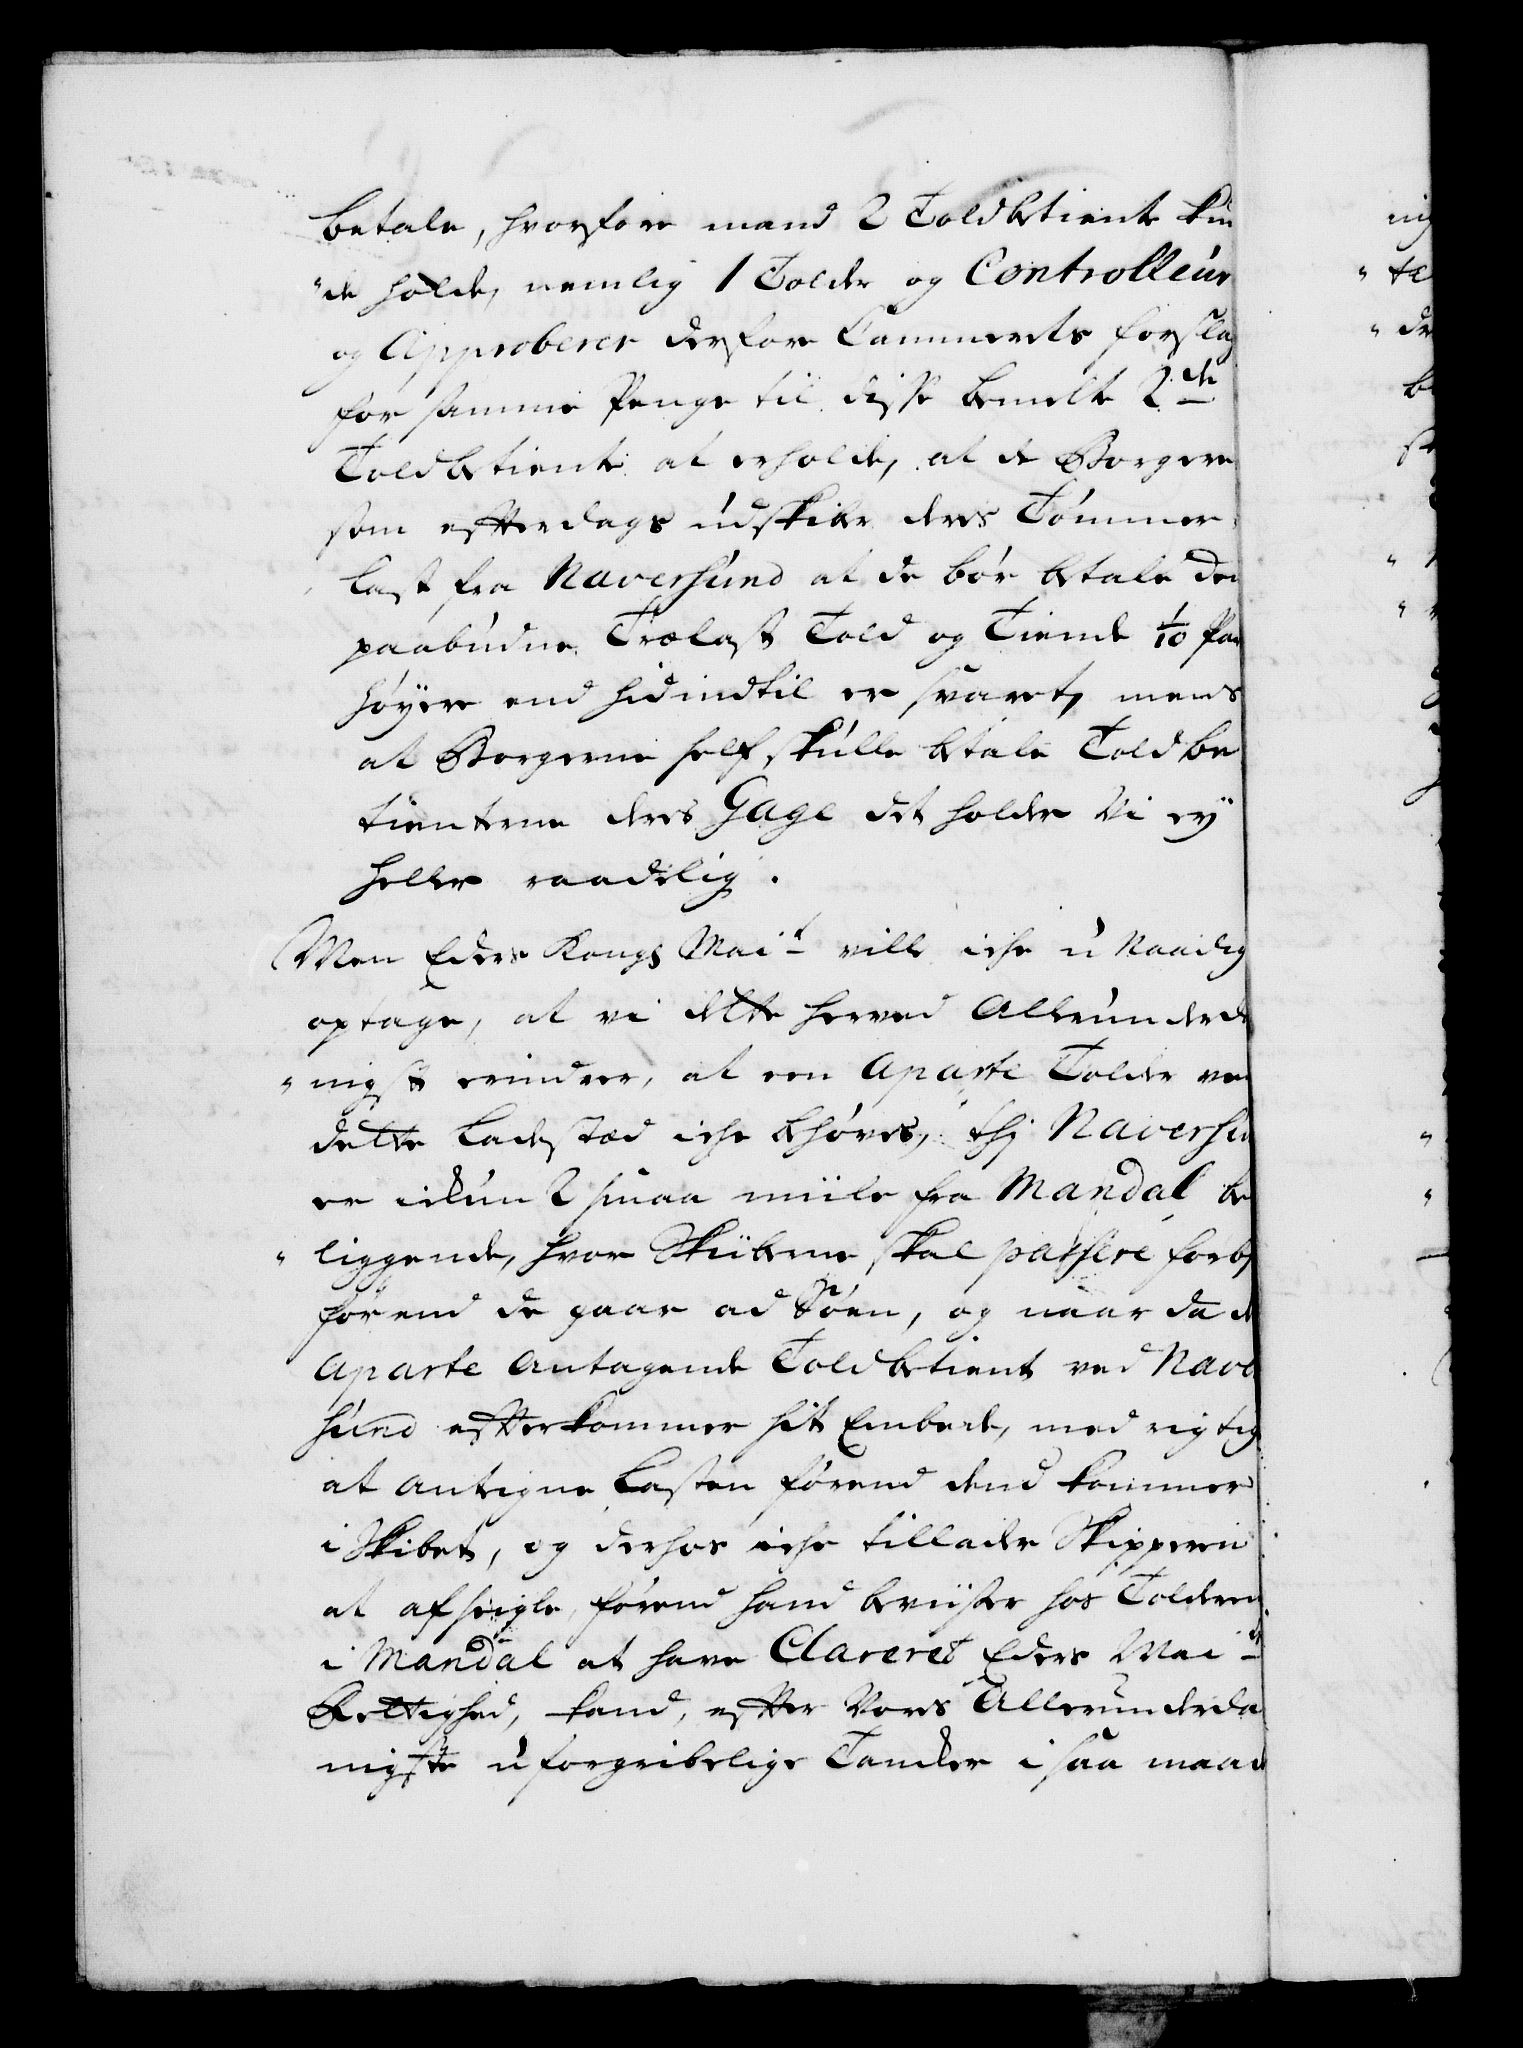 betale, hvorfore mand 2 Toldbetiente kun
"de holde, nemlig 1 Tolder og Controlleur
og Approberer derfore Cammerets forslag
for samme Penge til disse bemelte 2de
Toldbetiente at erholde, at de Borgere
som effterdags udskiber deres Tømmer
Last fra Naversund at de bør betale den
paabudne Trælast Told og Tiende 1/10 Par
høyere end hidindtil er svaret, mens
at Borgerne self skulle betale Toldbe
tienterne deres Gage det holder Vi ey
heller raadelig.
Men Eders Kongs Mait ville iche u Naadig
optage, at vi dette herved Allerunderda
"nigst erindrer, at een aparte Tolder ved
dette Ladestæd iche behøves, thj Naversun
er ickun 2 smaa miile fra Mandal be
"liggende, hvor Skiiberne skal passere forbj
førend de gaar ad Søen, og naar da de
aparte Antagende Toldbetient ved Nave
sund effterkommer sit Embede, med rigtig
at antegne Lasten førend dend kommer
i Skibet, og derhos iche tillader Skipperen
at afseigle, førend hand beviiser hos Tolderen
i Mandal at have Clareret Eders Maits
Rettighed, kand, effter Vores Allerunderda
nigste uforgribelige Tancker i saa maade